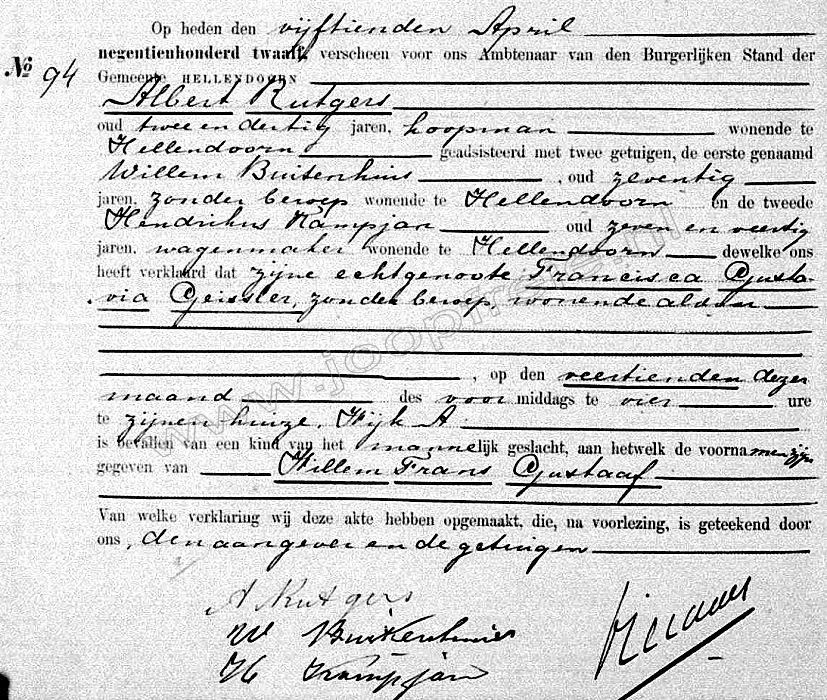 Op heden den vijftienden April
negentienhonderd twaalf, verscheen voor ons Ambtenaar van den Burgerlijken Stand der
№ 94
Gemeente HELLENDOORN
Albert Rutgers
oud twee en dertig jaren, koopman wonende te
Hellendoorn geadsisteerd met twee getuigen, de eerste genaamd
Willem Buitenhuis, oud zeventig
jaren, zonder beroep wonende te Hellendoorn en de tweede
Hendrikus Kampjan oud zeven en veertig
jaren, wagenmaker wonende te Hellendoorn dewelke ons
heeft verklaard dat zijne echtgenoote Francisca Gusta-
via Geissler, zonder beroep, wonende aldaar
, op den veertienden dezer
maand des voor middags te vier ure
te zijnen huize, Wijk A
is bevallen van een kind van het mannelijk geslacht, aan hetwelk de voornamen zijn
gegeven van Willem Frans Gustaaf
Van welke verklaring wij deze akte hebben opgemaakt, die, na voorlezing, is geteekend door
ons, den aangever en de getuigen
A Rutgers
W Buitenhuis
H Kampjan